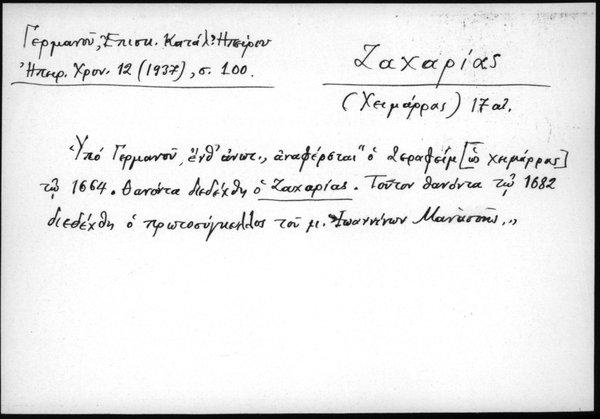 Γερμανοῦ, Ἐπισκ. Κατάλ. Ἠπείρου
Ἠπειρ. Χρον. 12 (1937), σ. 100.
Ζαχαρίας
(Χειμάρρας) 17 αἰ.
Ὑπό Γερμανοῦ, ἔνθ' ἀνωτ., ἀναφέρεται " ὁ Σεραφείμ [ὁ Χειμάρρας]
τῷ 1664. Θανόντα διεδέχθη ὁ Ζαχαρίας. Τοῦτον θανόντα τῷ 1682
διεδέχθη ὁ πρωτοσύγκελλος τοῦ μ. Ἰωαννίνων Μανασσῆς.,,